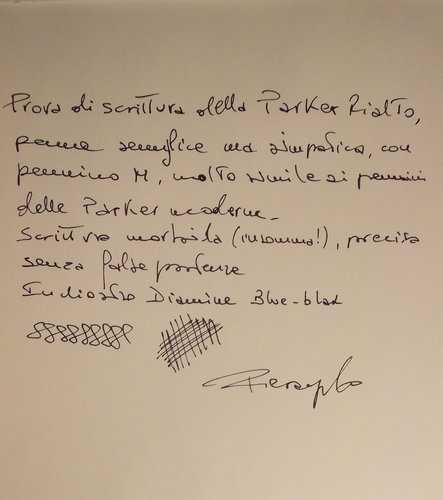 Prova di scrittura della Parker Rialto,
penna semplice ma simpatica, con
pennino M, molto simile ai pennini
delle Parker moderne.
Scrittura morbida (insomma!), precisa
senza false partenze
Inchiostro Diamine Blue-blak